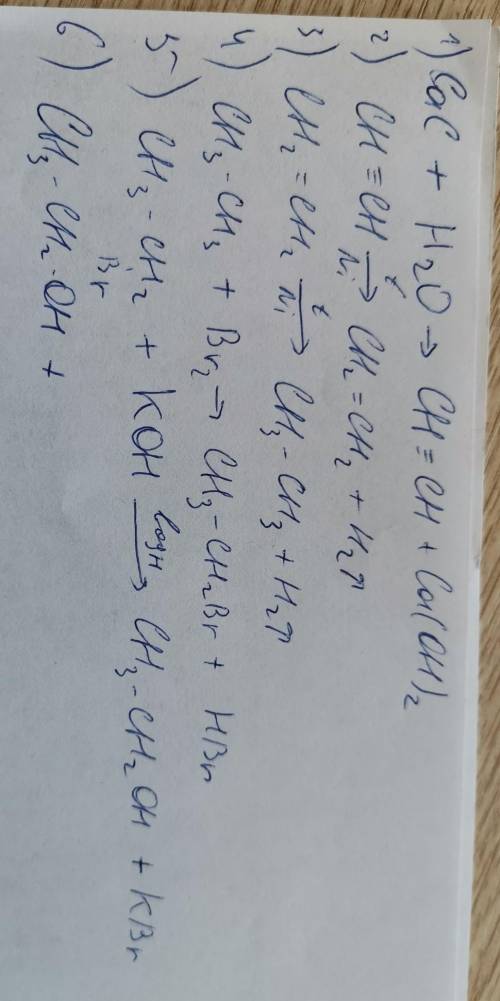 1) CaC + H2O → CH ≡ CH + Ca(OH)2
2) CH ≡ CH t→ Ni CH2 = CH2 + H2↑
3) CH2 = CH2 t→ Ni CH3 - CH3 + H2↑
4) CH3 - CH3 + Br2 → CH3 - CH2Br + HBr
5) CH3 - CH2 + KOH водн→ CH3 - CH2OH + KBr
Br
6) CH3 - CH2 - OH +